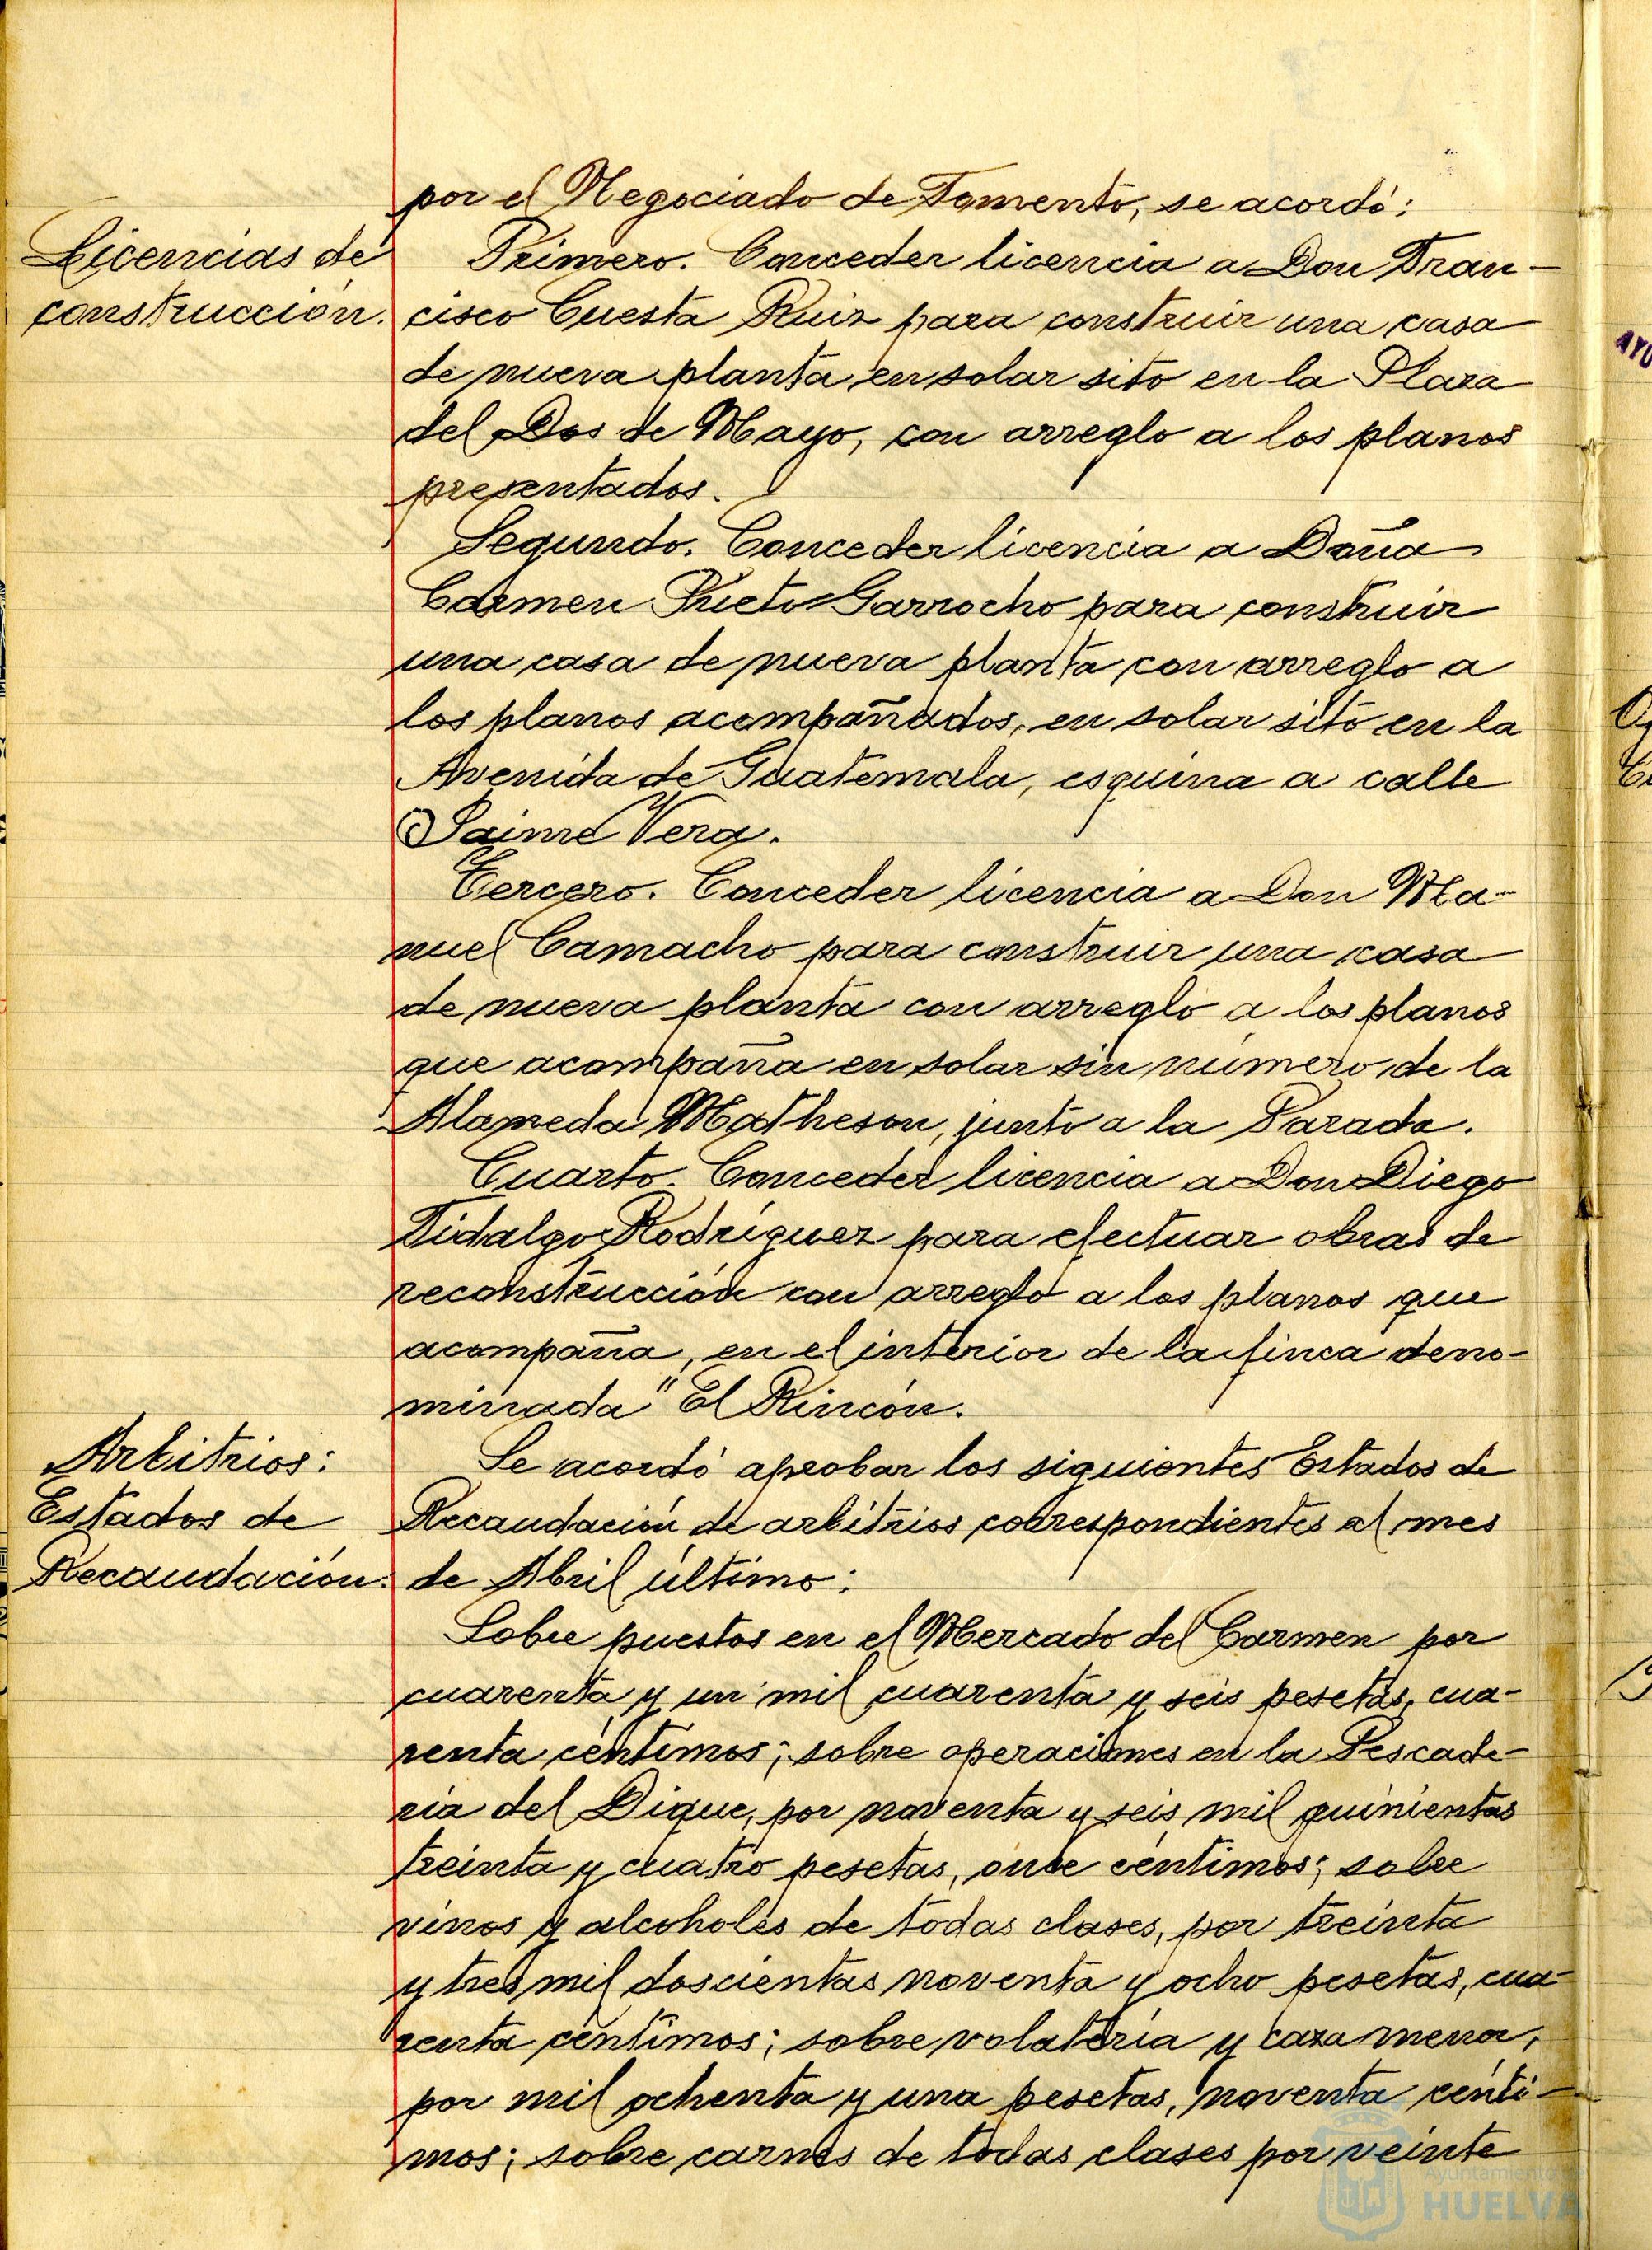 por el Negociado de Fomento, se acordó:
Licencias de
construcción.
Primero. Conceder licencia a Don Fran-
cisco Cuesta Ruiz para construir una casa
de nueva planta en solar sito en la Plaza
del Dos de Mayo, con arreglo a los planos
presentados.
Segundo. Conceder licencia a Doña
Carmen Prieto Garrocho para construir
una casa de nueva planta con arreglo a
los planos acompañados, en solar sito en la
Avenida de Guatemala, esquina a calle
Jaime Vera.
Tercero. Conceder licencia a Don Ma-
nuel Camacho para construir una casa
de nueva planta con arreglo a los planos
que acompaña en solar sin número de la
Alameda Matheson, junto a la Parada.
Cuarto. Conceder licencia a Don Diego
Fidalgo Rodríguez para efectuar obras de
reconstrucción con arreglo a los planos que
acompaña, en el interior de la finca deno-
minada "El Rincón.
Arbitrios:
Estados de
Recaudación.
Se acordó aprobar los siguientes Estados de
Recaudación de arbitrios correspondientes al mes
de Abril último:
Sobre puestos en el Mercado del Carmen por
cuarenta y un mil cuarenta y seis pesetas, cua-
renta céntimos; sobre operaciones en la Pescade-
ria del Dique, por noventa y seis mil quinientas
treinta y cuatro pesetas, once céntimos; sobre
vinos y alcoholes de todas clases, por treinta
y tres mil doscientas noventa y ocho pesetas, cua-
renta céntimos; sobre volatería y caza menor,
por mil ochenta y una pesetas, noventa cénti-
mos; sobre carnes de todas clases por veinte
Ayuntamiento de
HUELVA
AYU